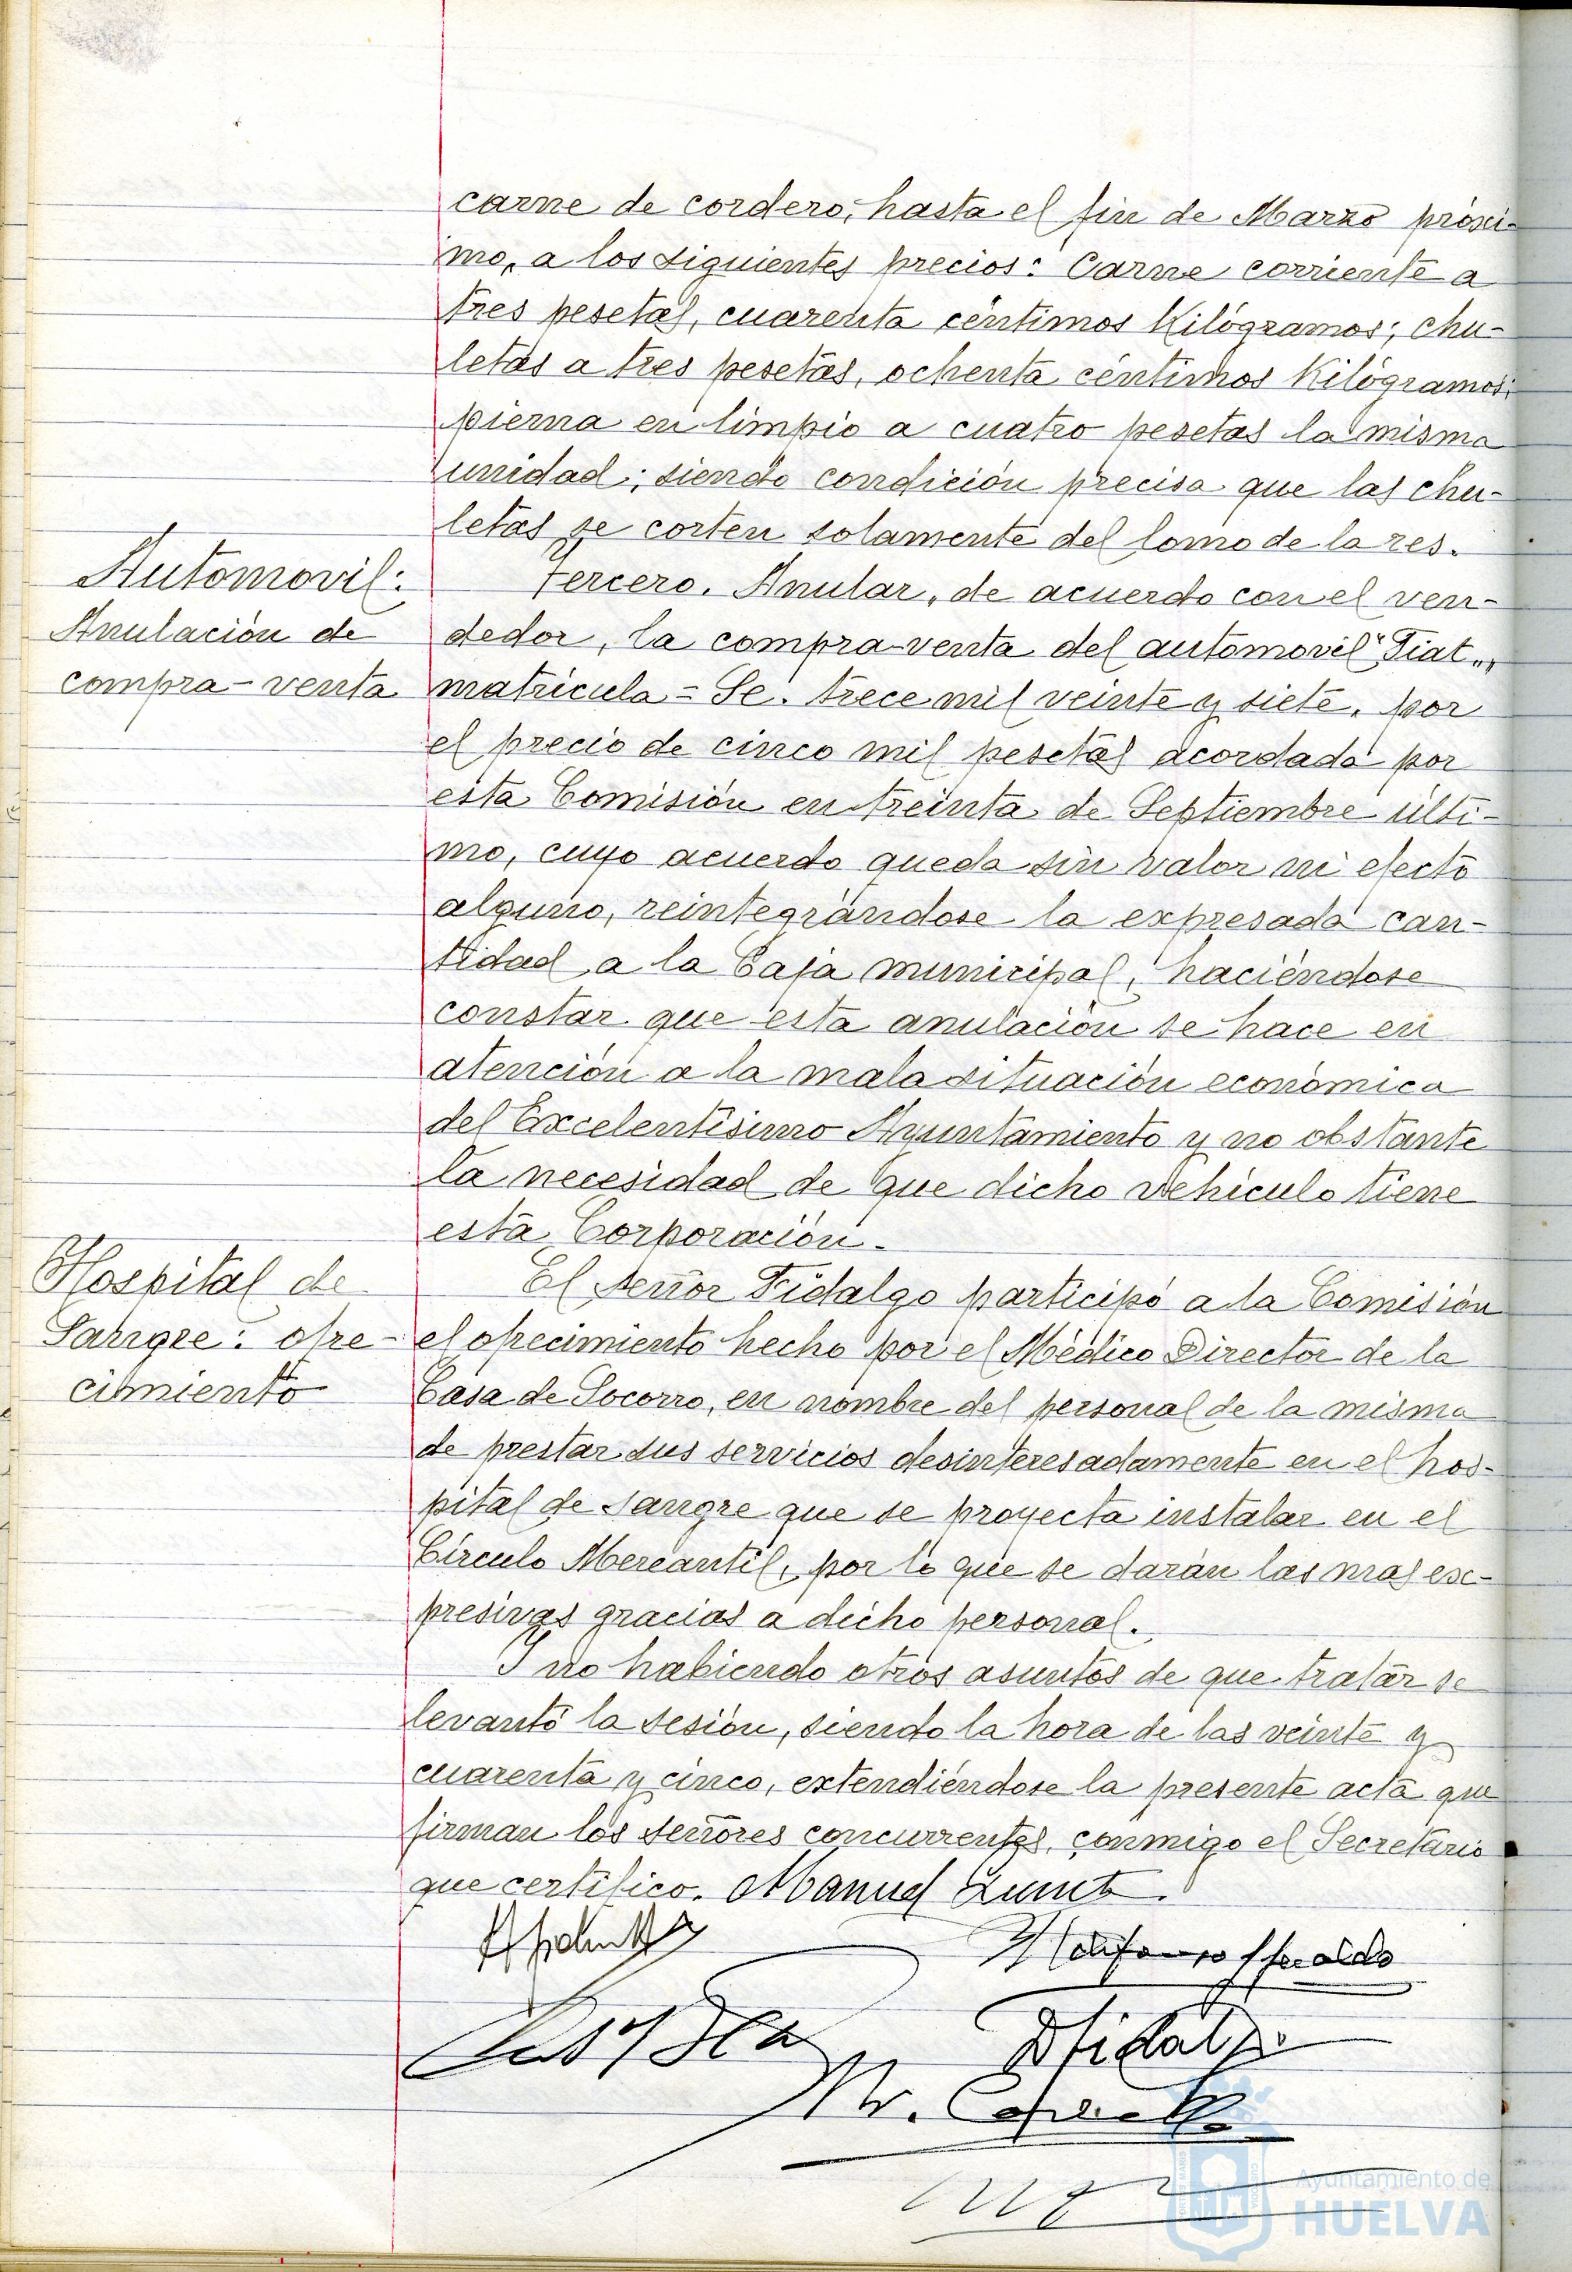 carne de cordero, hasta el fin de Marzo próxi-
mo, a los siguientes precios: Carne corriente a
tres pesetas, cuarenta céntimos Kilógramos; chu-
letas a tres pesetas, ochenta céntimos Kilógramos;
pierna en limpio a cuatro pesetas la misma
unidad; siendo condición precisa que las chu-
letas se corten solamente del lomo de la res.
Automovil:
Anulación de
compra-venta
Tercero. Anular, de acuerdo con el ven-
dedor, la compra-venta del automovil "Fiat",
matrícula = Se. trece mil veinte y siete, por
el precio de cinco mil pesetas acordada por
esta Comisión en treinta de Septiembre últi-
mo, cuyo acuerdo queda sin valor ni efecto
alguno, reintegrándose la expresada can-
tidad a la Caja municipal, haciéndose
constar que esta anulación se hace en
atención a la mala situación económica
del Excelentísimo Ayuntamiento y no obstante
la necesidad de que dicho vehículo tiene
esta Corporación.
Hospital de
Sangre: ofre-
cimiento
El señor Fidalgo participó a la Comisión
el ofrecimiento hecho por el Médico Director de la
Casa de Socorro, en nombre del personal de la misma
de prestar sus servicios desinteresadamente en el hos-
pital de sangre que se proyecta instalar en el
Círculo Mercantil, por lo que se darán las mas ex-
presivas gracias a dicho personal.
Y no habiendo otros asuntos de que tratar se
levantó la sesión, siendo la hora de las veinte y
cuarenta y cinco, extendiéndose la presente acta que
firman los señores concurrentes, conmigo el Secretario
que certifico. Manuel
DFidalgo
Ayuntamiento de
HUELVA